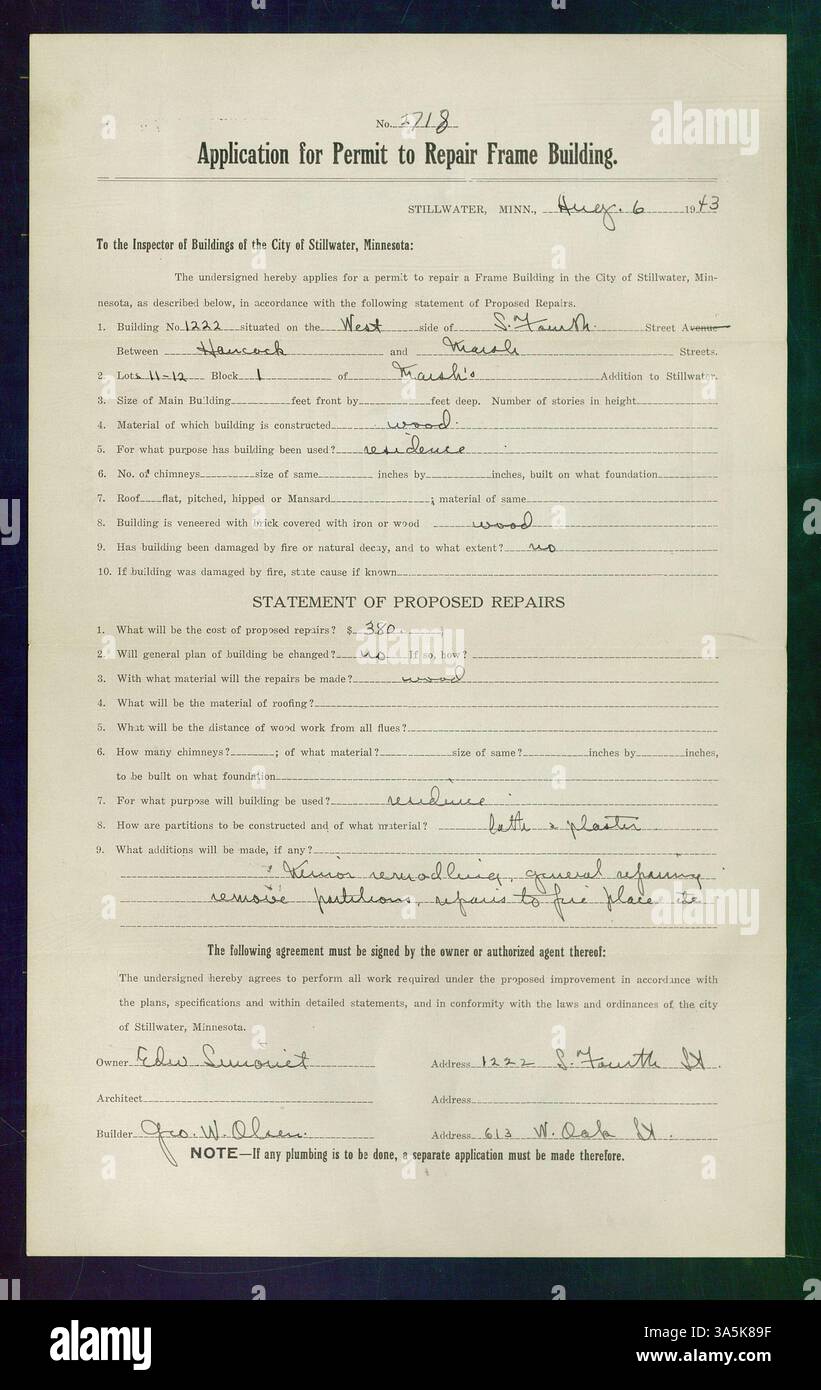 No. 2718
Application for Permit to Repair Frame Building.
STILLWATER, MINN., Aug. 6 1943
To the Inspector of Buildings of the City of Stillwater, Minnesota:
The undersigned hereby applies for a permit to repair a Frame Building in the City of Stillwater, Min-
nesota, as described below, in accordance with the following statement of Proposed Repairs.
1. Building No. 1222 situated on the West side of S. Fourth Street Avenue
Between Hancock and Marsh Streets.
2. Lots 11-12 Block 1 of Marsh's Addition to Stillwater.
3. Size of Main Building feet front by feet deep. Number of stories in height
4. Material of which building is constructed wood
5. For what purpose has building been used? residence
6. No. of chimneys size of same inches by inches, built on what foundation
7. Roof flat, pitched, hipped or Mansard ; material of same
8. Building is veneered with brick covered with iron or wood wood
9. Has building been damaged by fire or natural decay, and to what extent? no
10. If building was damaged by fire, state cause if known
STATEMENT OF PROPOSED REPAIRS
1. What will be the cost of proposed repairs? $ 380.
2. Will general plan of building be changed? no If so, how?
3. With what material will the repairs be made? wood
4. What will be the material of roofing?
5. What will be the distance of wood work from all flues?
6. How many chimneys? ; of what material? size of same? inches by inches,
to be built on what foundation
7. For what purpose will building be used? residence
8. How are partitions to be constructed and of what material? lath & plaster
9. What additions will be made, if any?
remodling, general repairing
remove partitions, repairs to fire place etc
The following agreement must be signed by the owner or authorized agent thereof:
The undersigned hereby agrees to perform all work required under the proposed improvement in accordance with
the plans, specifications and within detailed statements, and in conformity with the laws and ordinances of the city
of Stillwater, Minnesota.
Owner Edw Simonet Address 1222 S. Fourth St.
Architect Address
Builder Geo. W. Olsen. Address 613 W. Oak St.
NOTE—If any plumbing is to be done, a separate application must be made therefore.
alamy
Image ID: 3A5K89F
www.alamy.com